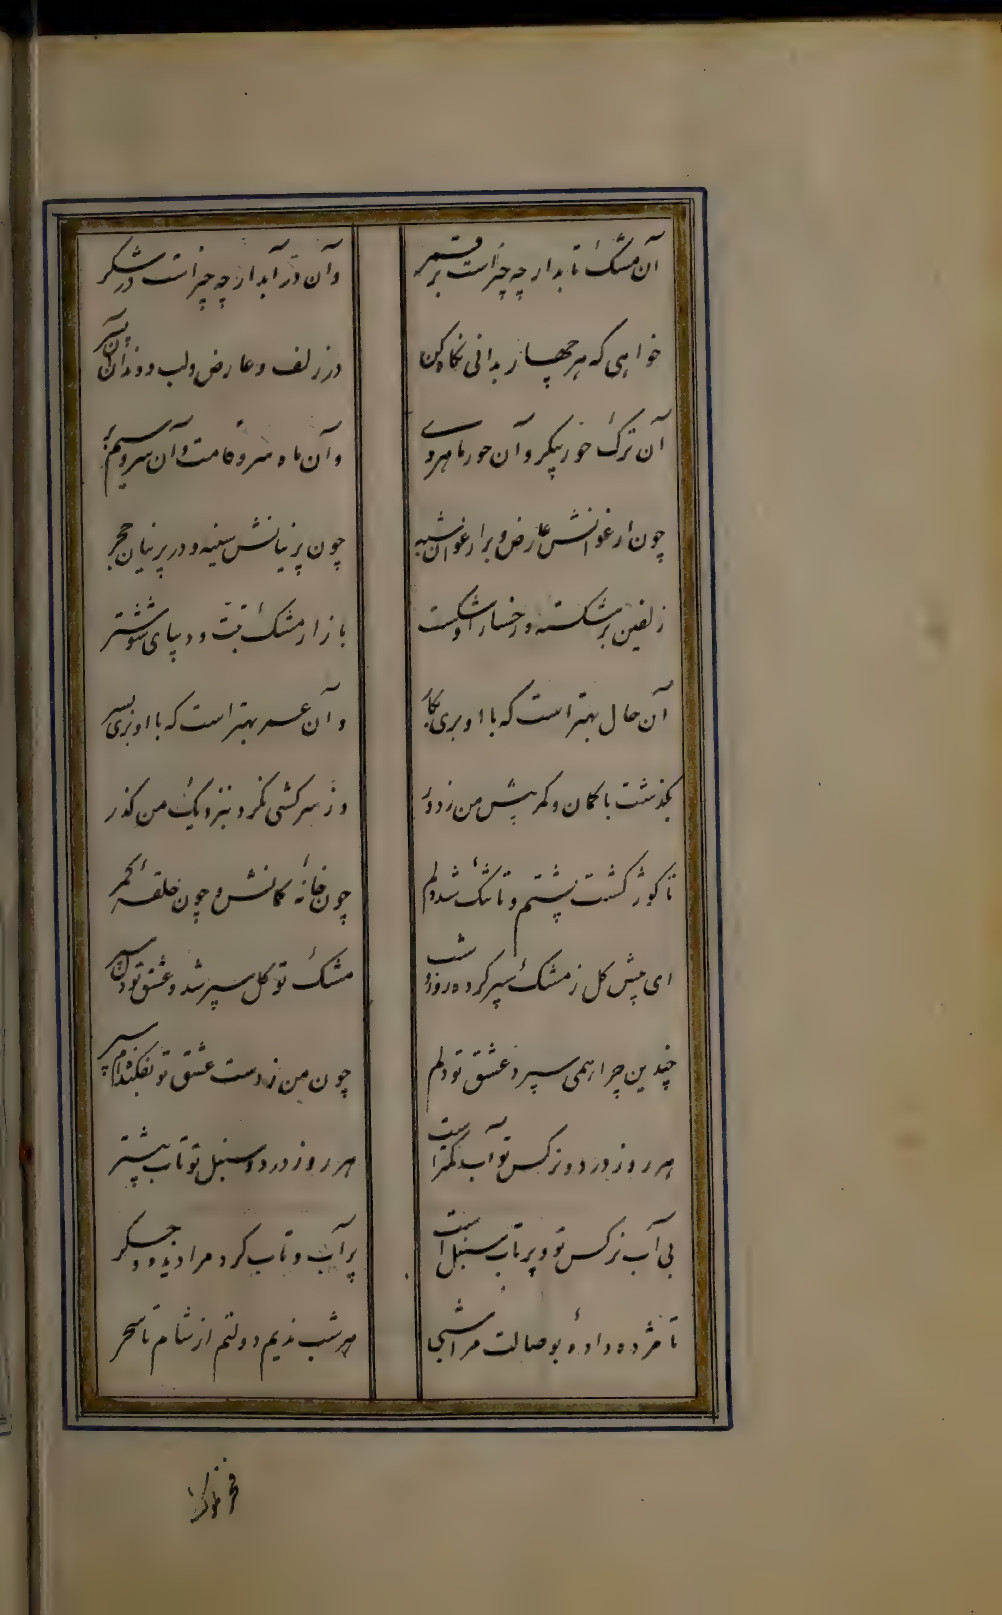 آن مشک تابدار چه چیز است بر قمر وآن در آبدار چه چیز است در شکر
خواهی که هر چهار بدانی نکاه کن در زلف و عارض ولب ودندان آن پسر
آن ترک خورپیکر وآن حور ماهروی وآن ماه سرو قامت وآن سرو سیمبر
چون ارغوانش عارض وبر ارغوان شبه چون پرنیانش سینه ودر پرنیان حجر
زلفین بر شکسته ورخسار او شکست بازار مشک تبت و دیبای شوشتر
آن حال بهتر است که با او بری بکار وآن عمر بهتر است که با او بری بسر
بکذشت با کمان وکمر پیش من ز دور وز سرکشی نکرد بنزدیک من کذر
تا کوژ کشت پشتم و تا تنک شد دلم چون خانهٔ کمانش و چون حلقهٔ کمر
ای پیش کل ز مشک سپر کرده روز و شب مشک تو کل سپر شد و عشق تو دل سپر
چندین چرا همی سپرد عشق تو دلم چون من ز دست عشق تو بفکنده‌ام سپر
هر روز در دو نرکس تو آب کمتر است هر روز در دو سنبل تو تاب بیشتر
بی آب نرکس تو وپر تاب سنبل است پر آب و تاب کرد مرا دیده و جکر
تا مژده داده‌ٔ بوصالت مرا شبی هر شب ندیم دولتم از شام تا سحر